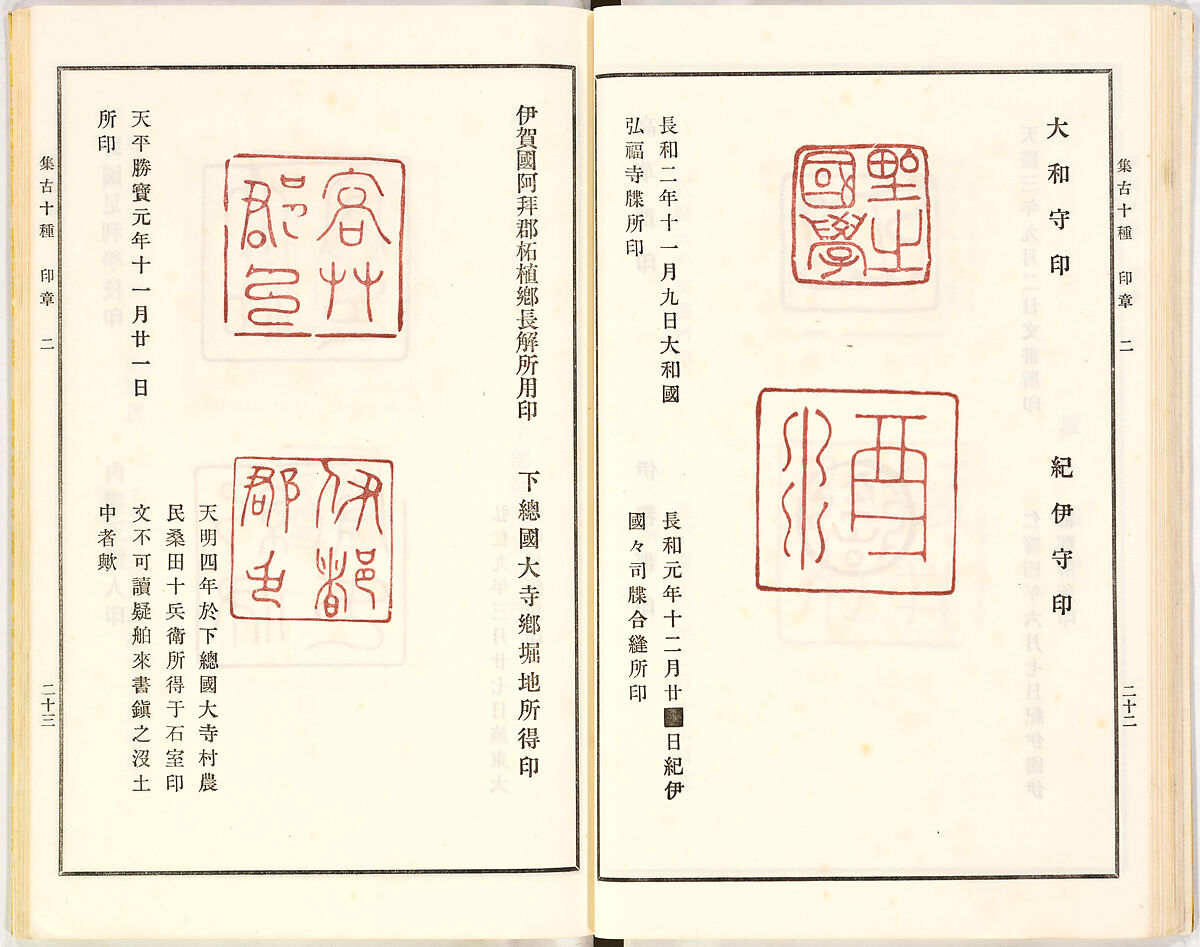 集古十種　印章　二
二十二
大和守印
長和二年十一月九日大和國
弘福寺牒所印
紀伊守印
長和元年十二月廿
日紀伊
國々司牒合縫所印
伊賀國阿拜郡柘植鄉長解所用印
天平勝寶元年十一月廿一日
所印
下總國大寺鄉堀地所得印
天明四年於下總國大寺村農
民桑田十兵衛所得于石室印
文不可讀疑舶來書鎭之沒土
中者歟
集古十種　印章　二
二十三